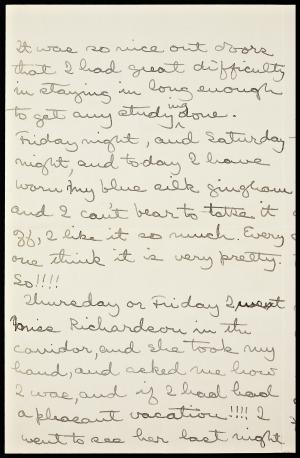 It was so nice out doors
that I had great difficulty
in staying in long enough
to get any studying done.
Friday night, and Saturday
night, and today I have
worn my blue silk gingham
and I can't bear to take it
off, I like it so much. Every
one think it is very pretty.
So!!!!
Thursday or Friday I met
Miss Richardson in the
corridor, and she took my
hand, and asked me how
I was, and if I had had
a pleasant vacation!!!! I
went to see her last night